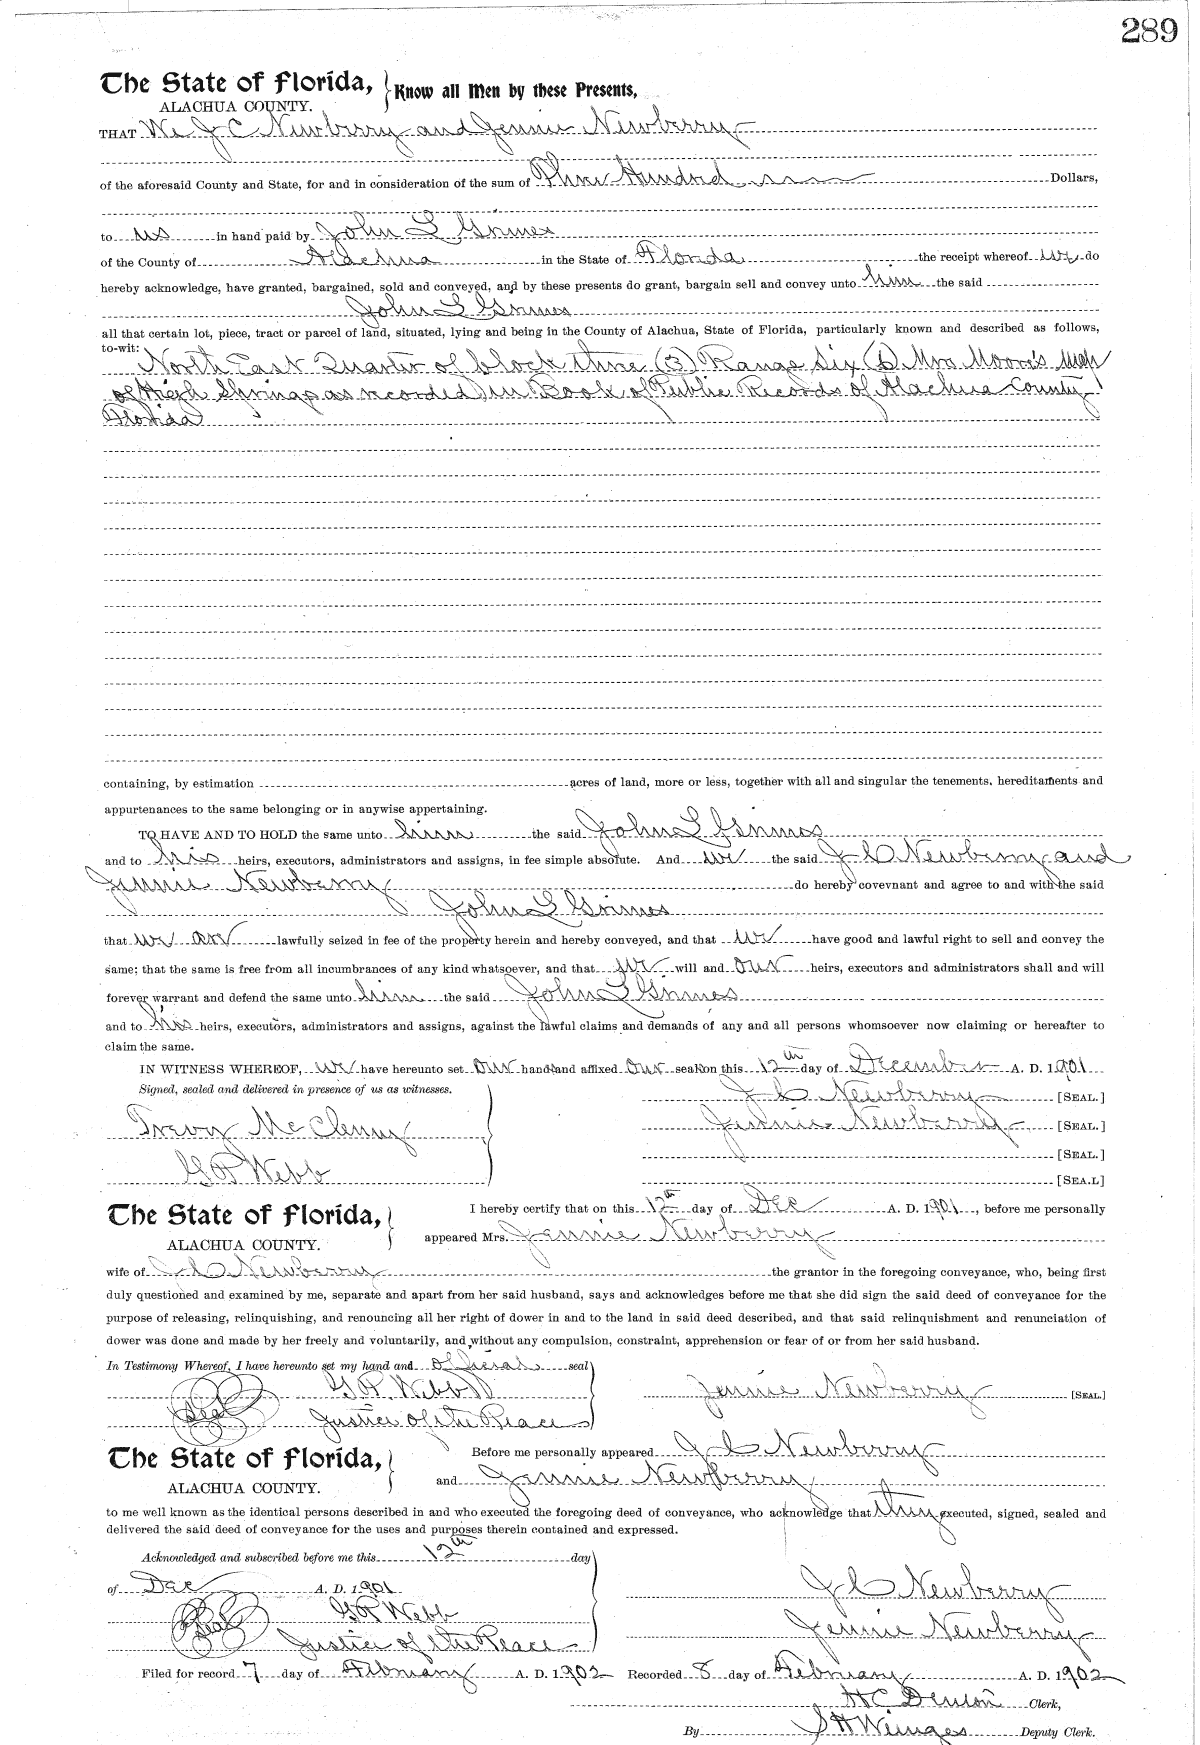 289
The State of Florida, Know all Men by these Presents,
ALACHUA COUNTY.
THAT We J C Newberry and Jennie Newberry
of the aforesaid County and State, for and in consideration of the sum of Three Hundred Dollars,
to us in hand paid by John L Grimes
of the County of Alachua in the State of Florida the receipt whereof we do
hereby acknowledge, have granted, bargained, sold and conveyed, and by these presents do grant, bargain sell and convey unto him the said
John L Grimes
all that certain lot, piece, tract or parcel of land, situated, lying and being in the County of Alachua, State of Florida, particularly known and described as follows,
to-wit: North East Quarter of block three (3) Range Six (6) Mrs Moore's Map
of High Springs as recorded in Book of Public Records of Alachua County
Florida
containing, by estimation acres of land, more or less, together with all and singular the tenements, hereditaments and
appurtenances to the same belonging or in anywise appertaining.
TO HAVE AND TO HOLD the same unto him the said John L Grimes
and to his heirs, executors, administrators and assigns, in fee simple absolute. And we the said J C Newberry and
Jennie Newberry do hereby covevnant and agree to and with the said
John L Grimes
that we are lawfully seized in fee of the property herein and hereby conveyed, and that we have good and lawful right to sell and convey the
same; that the same is free from all incumbrances of any kind whatsoever, and that we will and our heirs, executors and administrators shall and will
forever warrant and defend the same unto him the said John L Grimes
and to his heirs, executors, administrators and assigns, against the lawful claims and demands of any and all persons whomsoever now claiming or hereafter to
claim the same.
IN WITNESS WHEREOF, we have hereunto set our hands and affixed our seals on this 12th day of December A. D. 1901
Signed, sealed and delivered in presence of us as witnesses.
J C Newberry [SEAL.]
Trevy McClenny
Jennie Newberry [SEAL.]
[SEAL.]
G P Webb
[SEA.L]
The State of Florida, I hereby certify that on this 12th day of Dec A. D. 1901, before me personally
ALACHUA COUNTY. appeared Mrs. Jennie Newberry
wife of J C Newberry the grantor in the foregoing conveyance, who, being first
duly questioned and examined by me, separate and apart from her said husband, says and acknowledges before me that she did sign the said deed of conveyance for the
purpose of releasing, relinquishing, and renouncing all her right of dower in and to the land in said deed described, and that said relinquishment and renunciation of
dower was done and made by her freely and voluntarily, and without any compulsion, constraint, apprehension or fear of or from her said husband.
In Testimony Whereof, I have hereunto set my hand and official seal
G P Webb Jennie Newberry [SEAL.]
Seal Justice of the Peace
The State of Florida, Before me personally appeared J C Newberry
ALACHUA COUNTY. and Jennie Newberry
to me well known as the identical persons described in and who executed the foregoing deed of conveyance, who acknowledge that they executed, signed, sealed and
delivered the said deed of conveyance for the uses and purposes therein contained and expressed.
Acknowledged and subscribed before me this 12th day
of Dec A. D. 1901 J C Newberry
G P Webb
Seal Justice of the Peace Jennie Newberry
Filed for record 7 day of February A. D. 1902 Recorded 8 day of February A. D. 1902
H C Denton Clerk,
By S H Wienges Deputy Clerk.